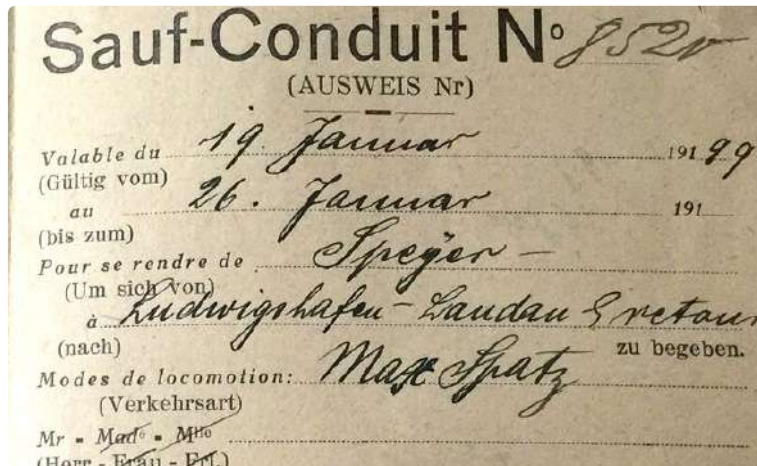 Sauf-Conduit Nº 8520
(AUSWEIS Nr)
Valable du 19. Januar 19199
(Gültig vom)
au 26. Januar 191
(bis zum)
Pour se rendre de Speÿer -
(Um sich von)
à Ludwigshafen - Landau & retour
(nach) zu begeben.
Modes de locomotion: Max Spatz
(Verkehrsart)
Mr - Made - Mlle
(Herr - Frau - Frl.)